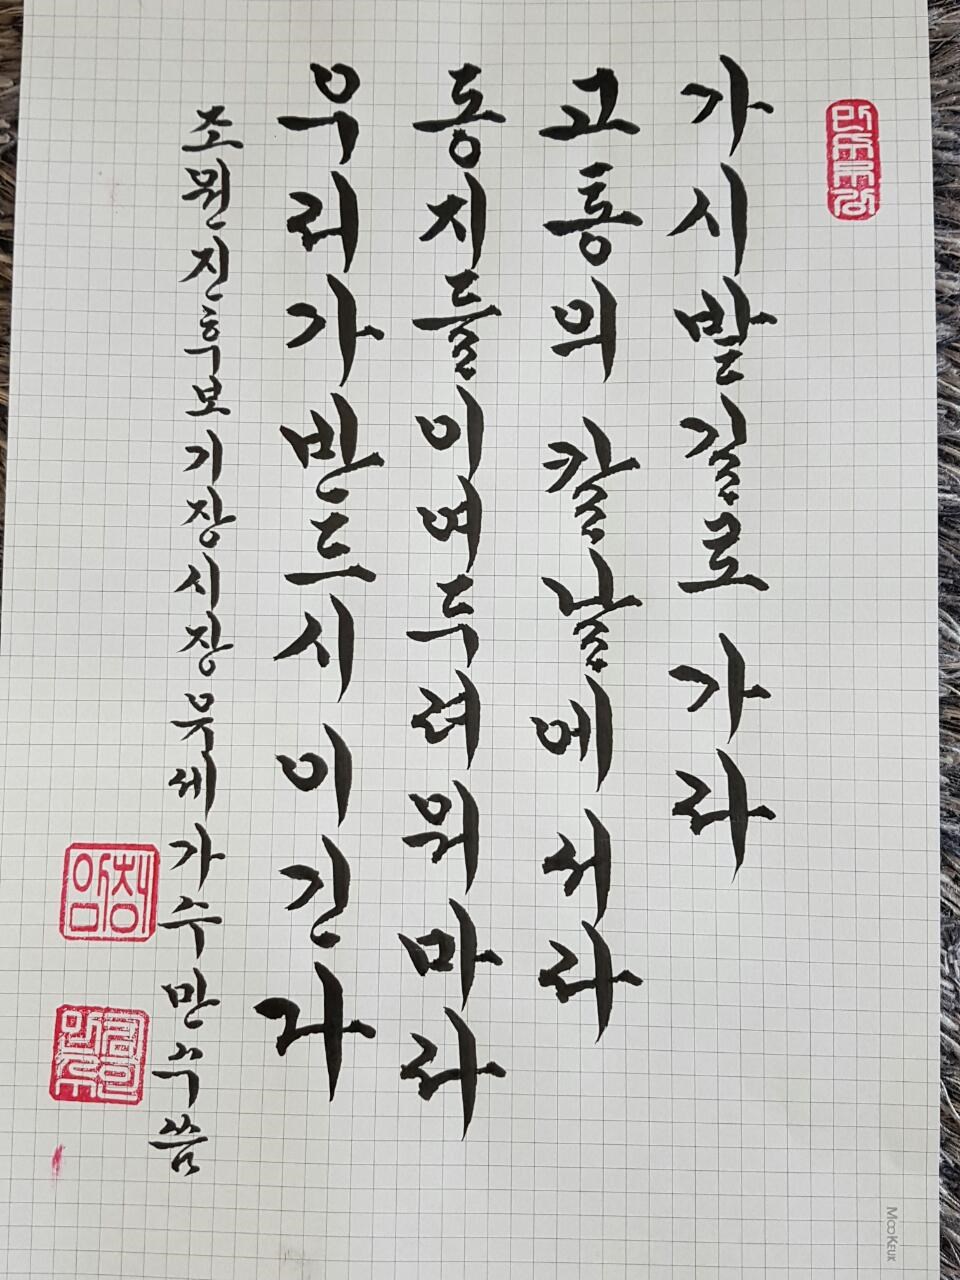 가시밭길로 가라
고통의 칼날에 서라
동지들이여 두려워 마라
우리가 반드시 이긴다
조원진 후보 기장시장 유세가 수만수 씀
MooKeuk